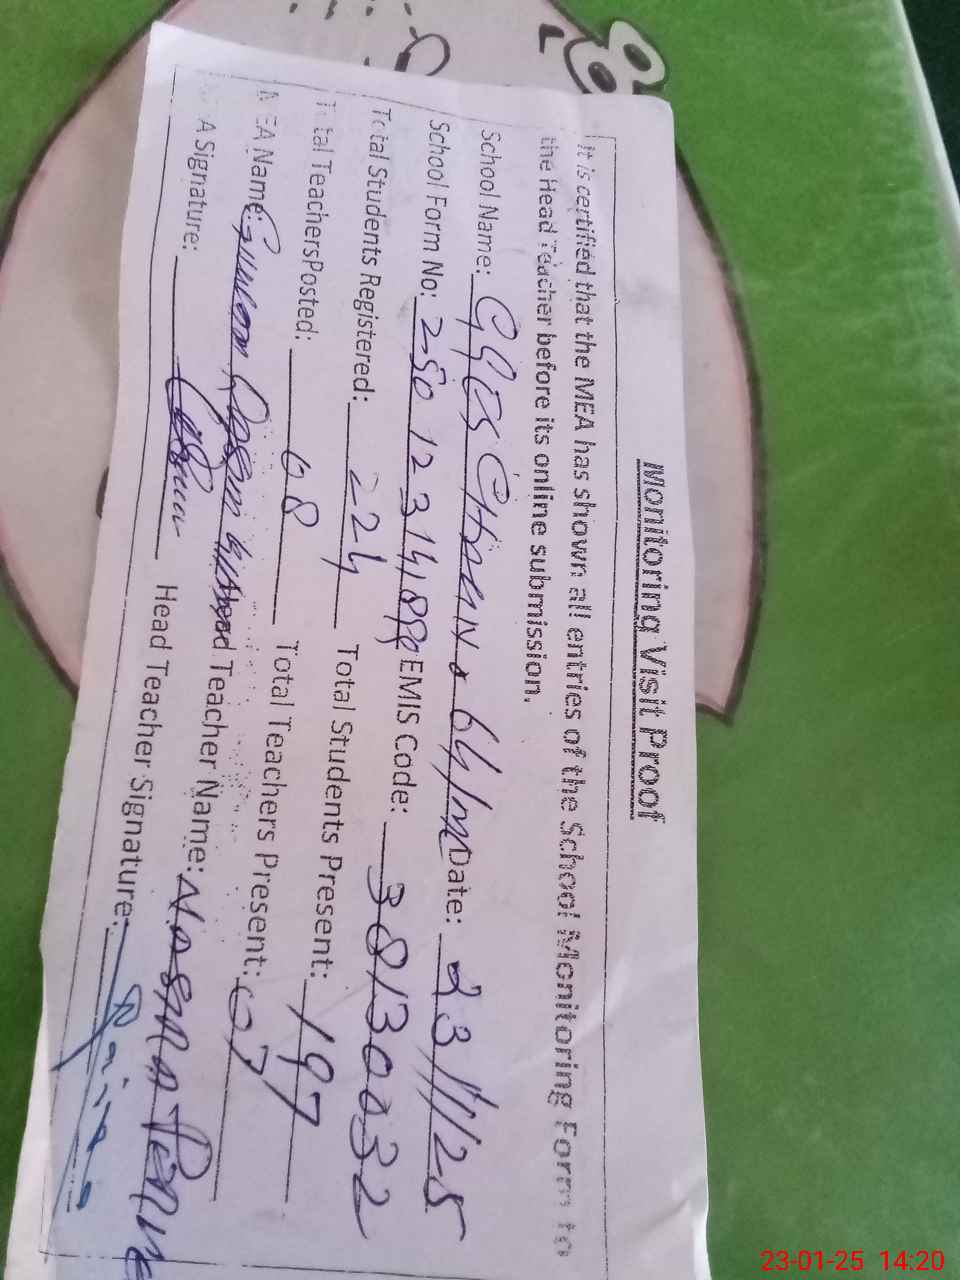 Monitoring Visit Proof
It is certified that the MEA has shown all entries of the School Monitoring Form to
the Head Teacher before its online submission.
School Name: GGES Chak No 64/m Date: 23/1/25
School Form No: EMIS Code: 38130032
Total Students Registered: 224 Total Students Present: 197
Total TeachersPosted: 08 Total Teachers Present: 07
MEA Name: Head Teacher Name:
A Signature: Head Teacher Signature:
23-01-25 14:20